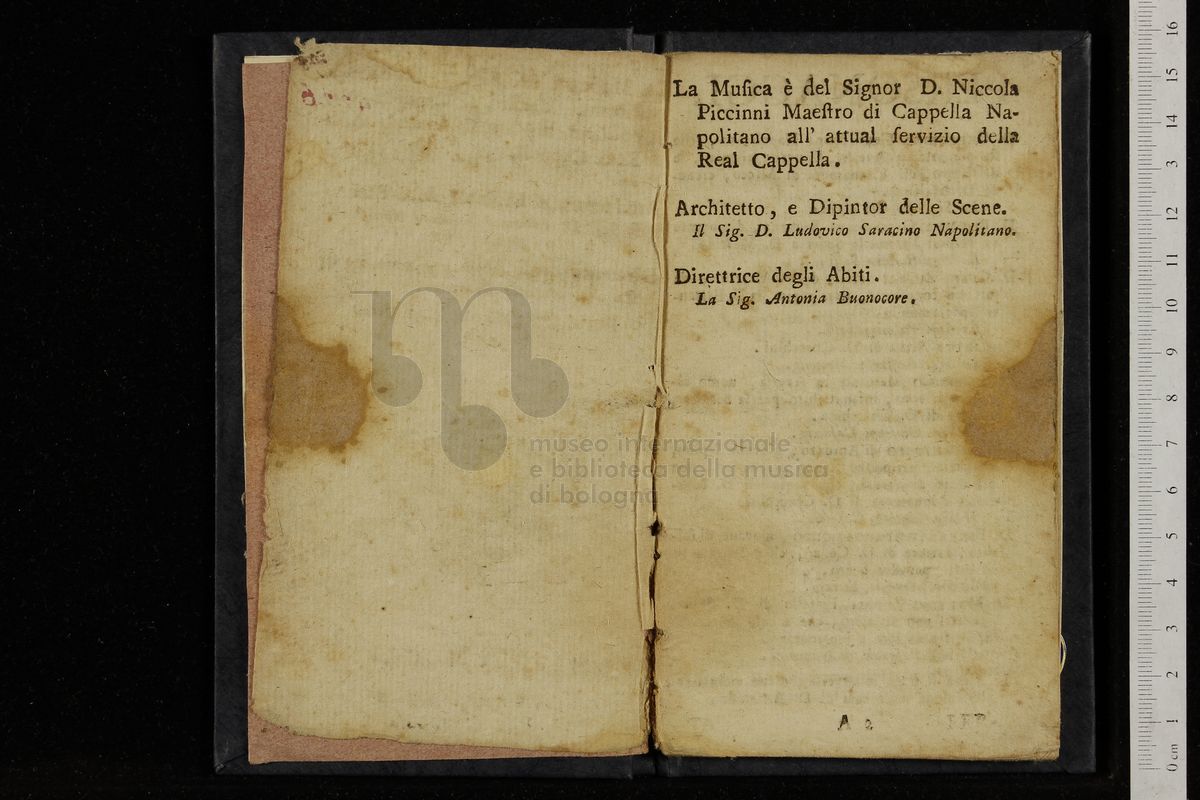 La Muſica è del Signor D. Niccola
Piccinni Maeſtro di Cappella Na-
politano all' attual ſervizio della
Real Cappella.
Architetto, e Dipintor delle Scene.
Il Sig. D. Ludovico Saracino Napolitano.
Direttrice degli Abiti.
La Sig. Antonia Buonocore.
A 2
museo internazionale
e biblioteca della musica
di bologna
0 cm 1 2 3 4 5 6 7 8 9 10 11 12 13 14 15 16